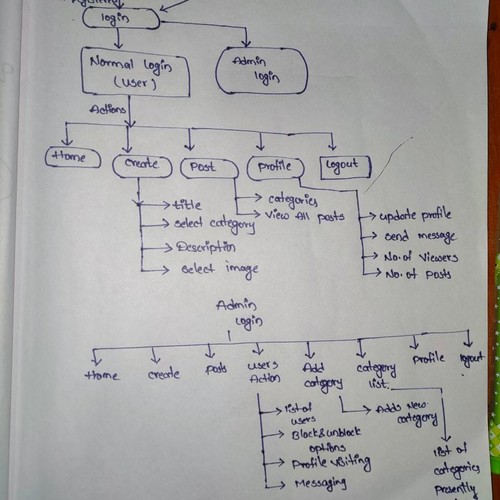 login
Normal login
(user)
Admin
login
Actions
Home
create
Post
Profile
Logout
title
select category
Description
select image
categories
View All posts
update profile
send message
No. of viewers
No. of Posts
Admin
Login
Home
create
posts
users
Action
Add
category
category
list
Profile
logout
list of
users
Block & unblock
options
Profile visiting
Messaging
Adds New
category
list of
categories
presently